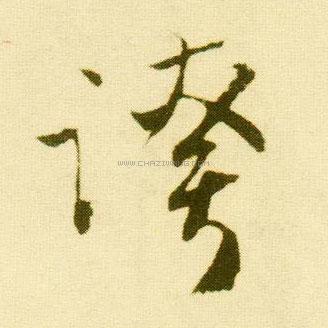 誇
WWW.CHAZIWANG.COM